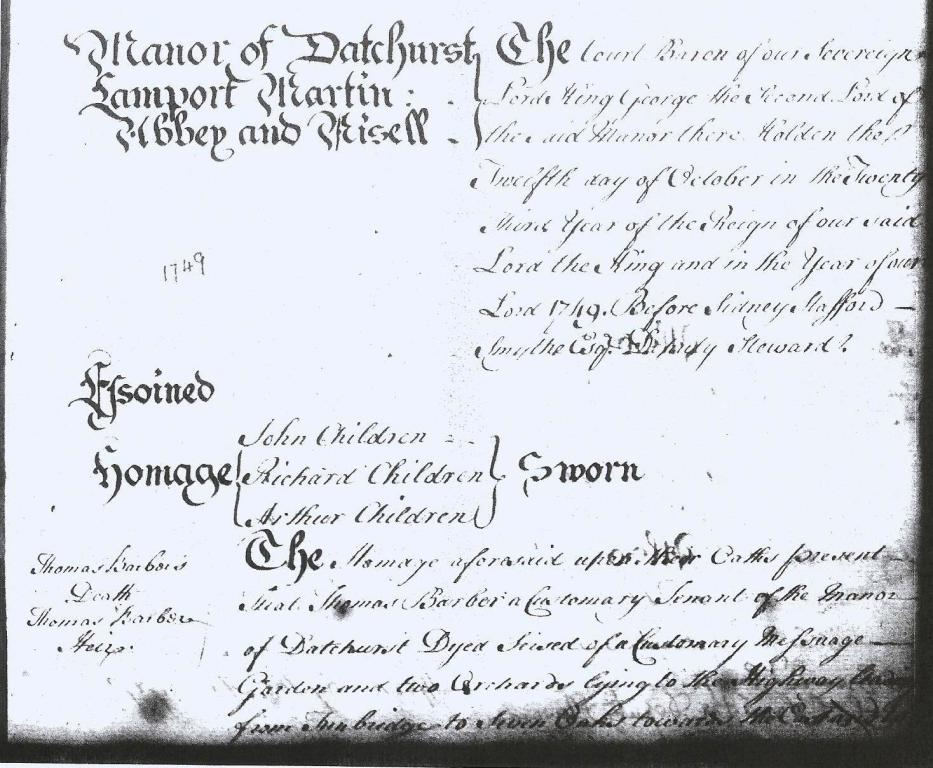 Manor of Datchurst
Lamport Martin :
Abbey and Nisell
The Court Baron of our Sovereign
Lord King George the Second Lord of
the said Manor there Holden the
Twelfth day of October in the Twenty
third Year of the Reign of our said
Lord the King and in the Year of our
Lord 1749. Before Sidney Stafford
Smythe Esq. Deputy Steward
1749
Essoined
Homage
John Children
Richard Children
Arthur Children
Sworn
Thomas Barbor's
Death
Thomas Barber
Heir.
The Homage aforesaid upon their Oaths present
that Thomas Barber a Customary Tenant of the Manor
of Datchurst Dyed Seised of a Customary Messuage
Garden and two Orchards lying to the Highway
from Tunbridge to Seven Oaks towards the